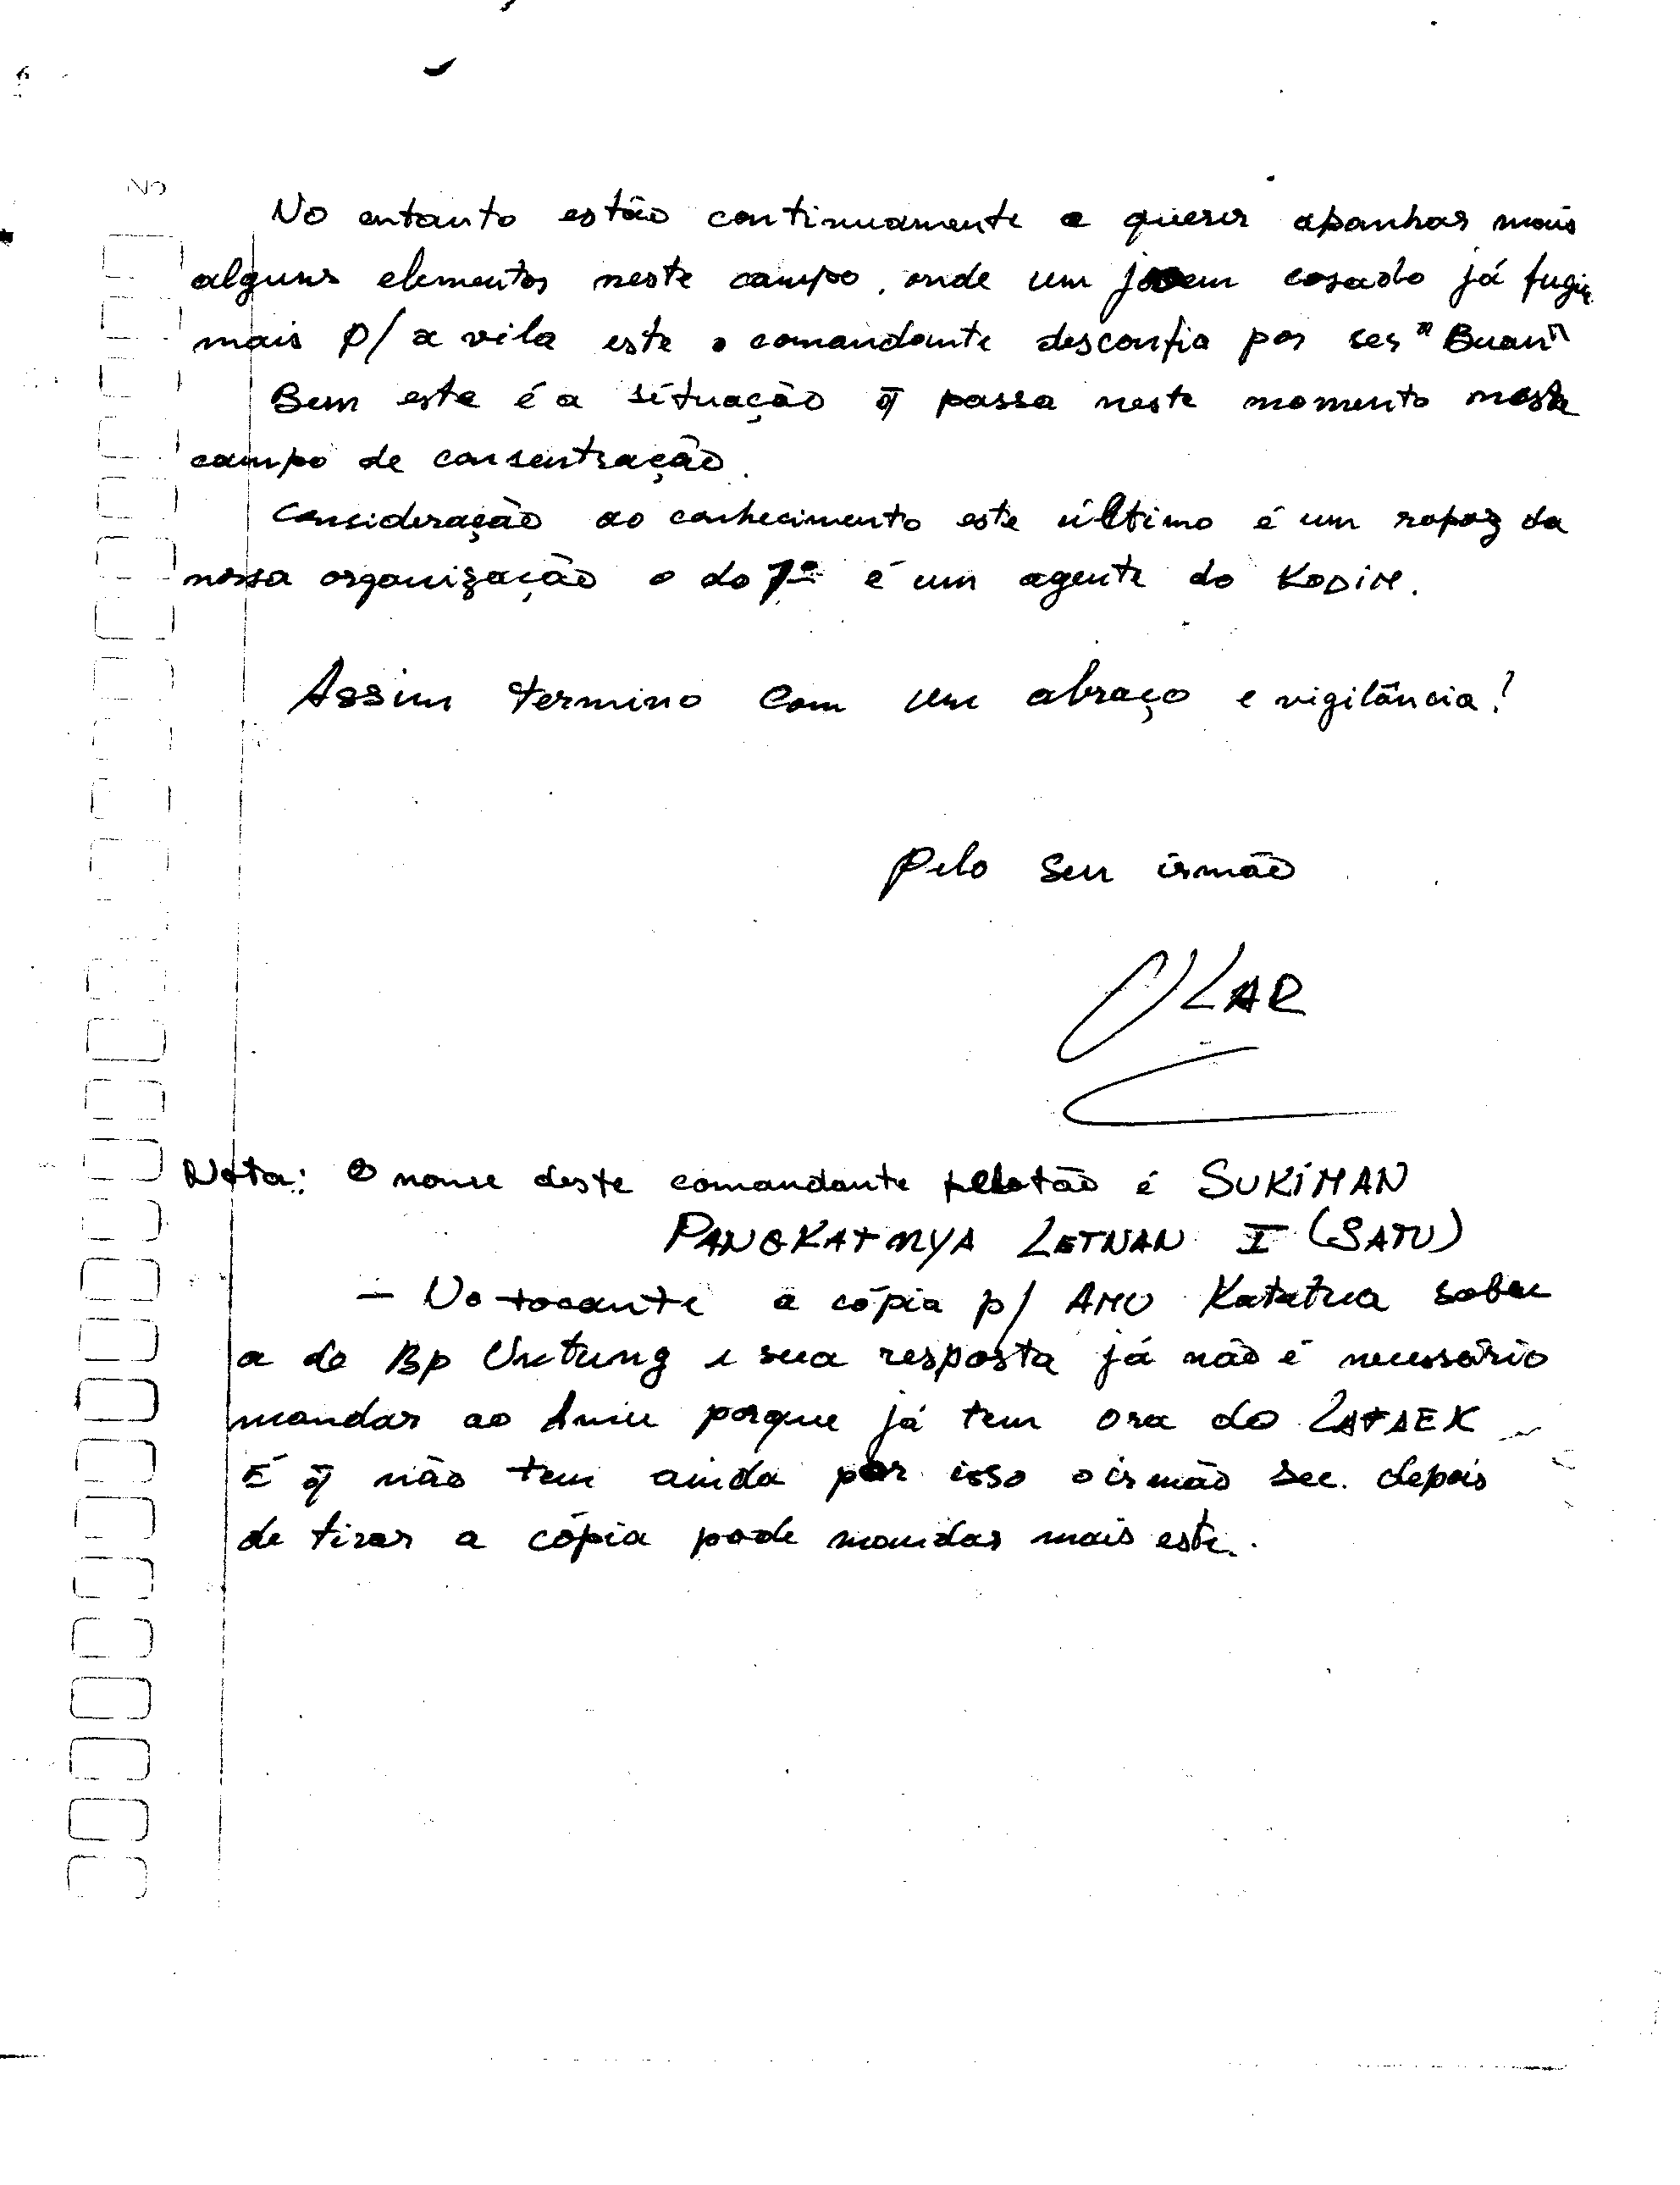 No entanto estão continuamente a querer apanhar mais
alguns elementos neste campo, onde um jovem casado já fugiu
mais p/ a vila este o comandante desconfia por ser "Buan"
Bem esta é a situação q̃ passa neste momento neste
campo de consentração.
Consideração ao conhecimento este último é um rapaz da
nossa organização o do 1º é um agente do KODIM.
Assim termino com um abraço e vigilância!
Pelo seu irmão
OLAR
Nota: O nome deste comandante pelotão é SUKIMAN
PANGKATNYA LETNAN I (SATU)
— No tocante a cópia p/ AMU Katatua sobre
a do Bp Untung e sua resposta já não é necessário
mandar ao porque já tem ora do LAFAEK
É q̃ não tem ainda por isso o irmão Sec. depois
de tirar a cópia pode mandar mais este.